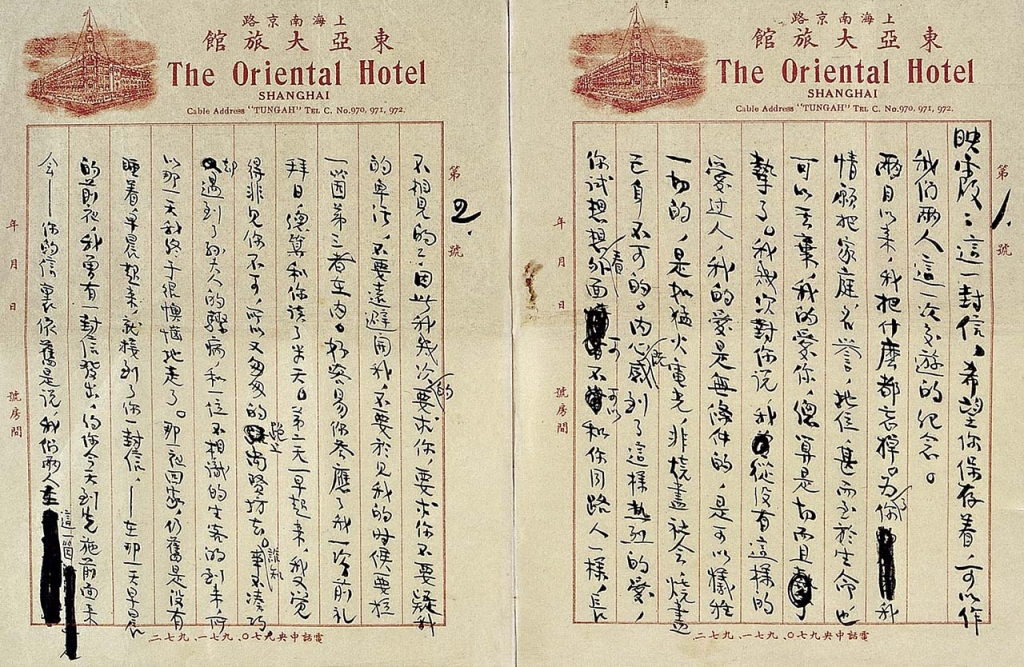 上海南京路
東亞大旅館
The Oriental Hotel
SHANGHAI
Cable Address "TUNGAH" TEL C. No.970, 971, 972.
第1.號
年 月 日 號房間
映霞：這一封信，希望你保存着，可以作
我們兩人這一次交遊的紀念。
兩月以來，我把什麼都忘掉。為你我
情願把家庭，名譽，地位，甚而至於生命，也
可以丟棄，我的愛你，總算是切而且
摯了。我幾次對你說，我從沒有這樣的
愛過人，我的愛是無條件的，是可以犧牲
一切的，是如猛火電光，非燒盡社會，燒盡
己身不可的。內心既感到了這樣熱烈的愛，
你試想想看外面可不可以和你同路人一樣，長
電話中央九七〇、九七一、九七二
上海南京路
東亞大旅館
The Oriental Hotel
SHANGHAI
Cable Address "TUNGAH" TEL C. No.970, 971, 972.
第2.號
年 月 日 號房間
不相見的？因此我幾次的要求你，要求你不要疑我
的卑污，不要遠避開我，不要於見我的時候要拉
一箇第三者在內。好容易你答應了我一次，前礼
拜日，總算和你談了半天。第二天一早起來，我又覺
得非見你不可，所以又匆匆的跑上尚賢坊去。誰知事不湊巧
却遇到了孫夫人的驟病，和一位不相識的生客的到來，所
以那一天我終于很懊惱地走了。那一夜回家，仍舊是沒有
睡着，早晨起來，就接到了你一封信，——在那一天早晨
的前夜，我曾有一封信發出，約你今天到先施前面來
會——你的信裏依舊是說，我們兩人在這一箇
電話中央九七〇、九七一、九七二